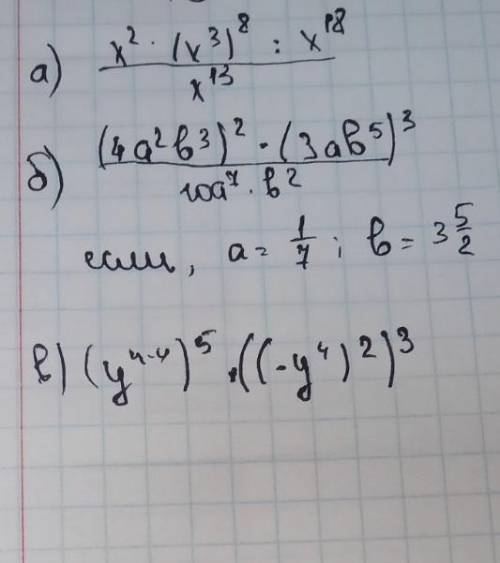 а) x² · (x³)⁸ : x¹⁸
x¹³
б) (4a²b³)² · (3ab⁵)³
10a⁷ · b²
если, a = 1/7 ; b = 3 5/2
в) (y⁴·⁴)⁵ · ((-y⁴)²)³